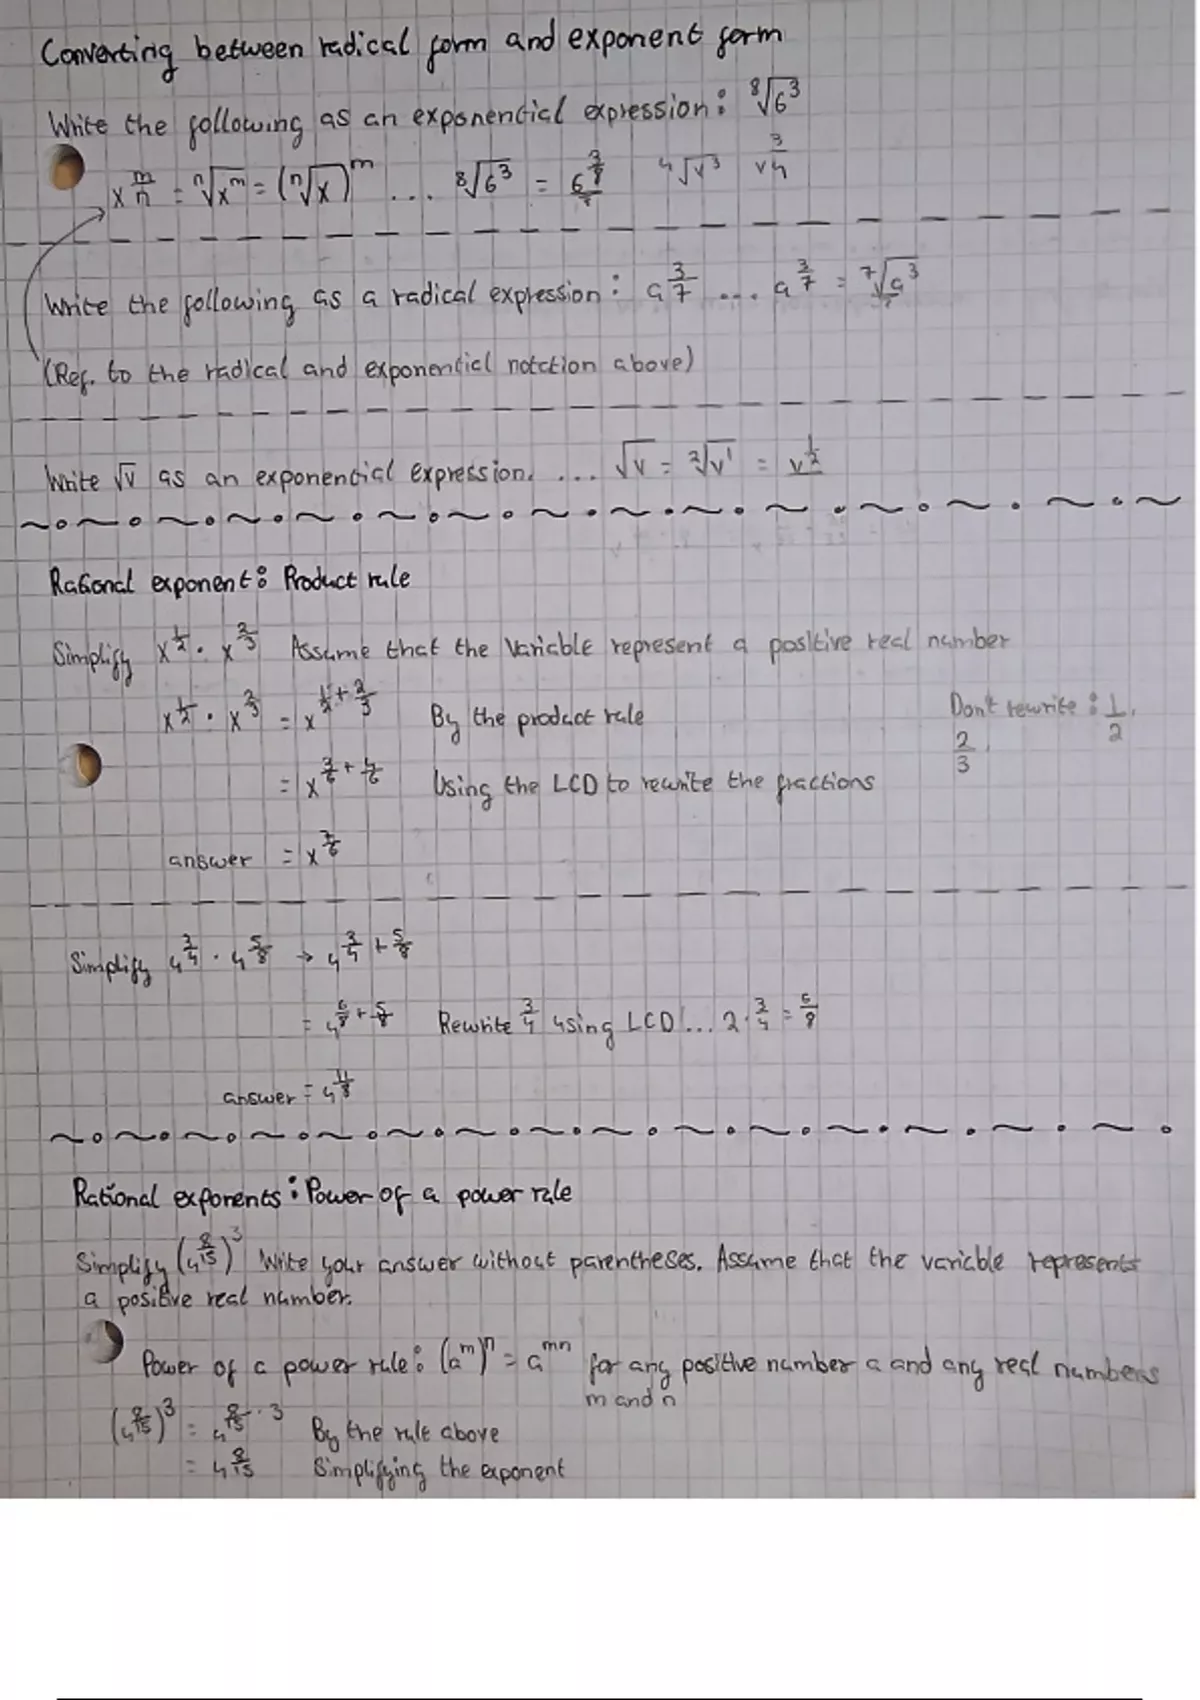 Converting between radical form and exponent form
Write the following as an exponential expression: ⁸√6³
x^(m/n) = ⁿ√x^m = (ⁿ√x)^m ... ⁸√6³ = 6^(3/8) ⁴√v³ v^(3/4)
Write the following as a radical expression: a^(3/7) ... a^(3/7) = ⁷√a³
(Ref. to the radical and exponential notation above)
Write √v as an exponential expression. ... √v = ²√v¹ = v^(1/2)
Rational exponent: Product rule
Simplify x^(1/2) · x^(2/3) Assume that the variable represent a positive real number
x^(1/2) · x^(2/3) = x^(1/2 + 2/3) By the product rule
Don't rewrite: 1/2, 2/3
= x^(3/6 + 4/6) Using the LCD to rewrite the fractions
answer = x^(7/6)
Simplify 4^(3/4) · 4^(5/8) → 4^(3/4 + 5/8)
= 4^(6/8 + 5/8) Rewrite 3/4 using LCD! ... 2 · 3/4 = 6/8
answer = 4^(11/8)
Rational exponents: Power of a power rule
Simplify (4^(8/15))³ Write your answer without parentheses. Assume that the variable represents
a positive real number.
Power of a power rule: (a^m)^n = a^mn for any positive number a and any real numbers
m and n
(4^(8/15))³ = 4^(8/15 · 3) By the rule above
= 4^(8/15) Simplifying the exponent